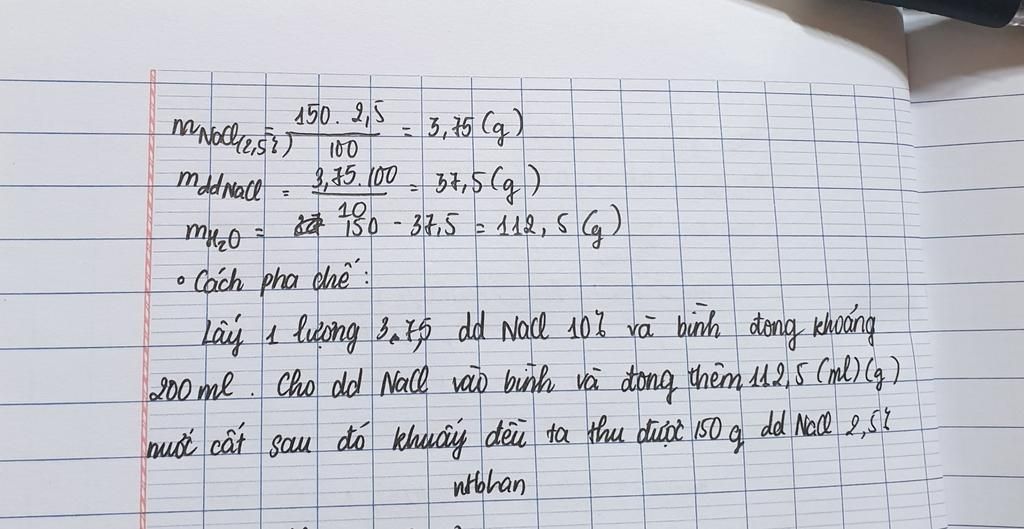 mNaCl(2,5%) = 150. 2,5 / 100 = 3,75 (g)
mddNaCl = 3,75.100 / 10 = 37,5 (g)
mH₂O = 150 - 37,5 = 112,5 (g)
• Cách pha chế:
Lấy 1 lượng 3.75 dd NaCl 10% và bình đong khoảng
200 ml. Cho dd NaCl vào bình và đong thêm 112,5 (ml) (g)
nước cất sau đó khuấy đều ta thu được 150 g dd NaCl 2,5%